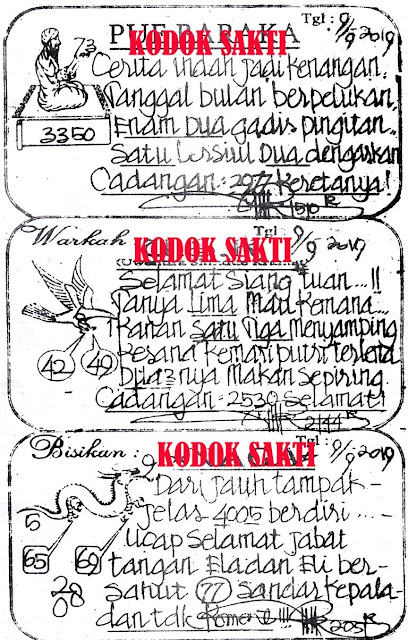 PUE BARAKA
KODOK SAKTI
Tgl : 9/9 2019
73
3350
Cerita indah jadi kenangan,
Tanggal bulan berpelukan,
Enam Dua gadis pingitan...
Satu Dua dengarkan
Cadangan : 2077 Keretanya!
1510
Warkah
KODOK SAKTI
Tgl : 9/9 2019
42 49
Selamat Siang tuan...!!
Tanya Lima Mau Kemana...
Kanan Satu Tiga menyamping
Kesana kemari putri
makan sepiring
Cadangan : 2530 Selamat!
2144
Bisikan :
KODOK SAKTI
Tgl : 9/9 2019
5
65 69
28
0
Dari jauh tampak -
jelas 4005 berdiri ... -
Ucap Selamat jabat
tangan Ela dan Eli ber-
sahut 77 Sandar Kepala -
dan tdk
2051